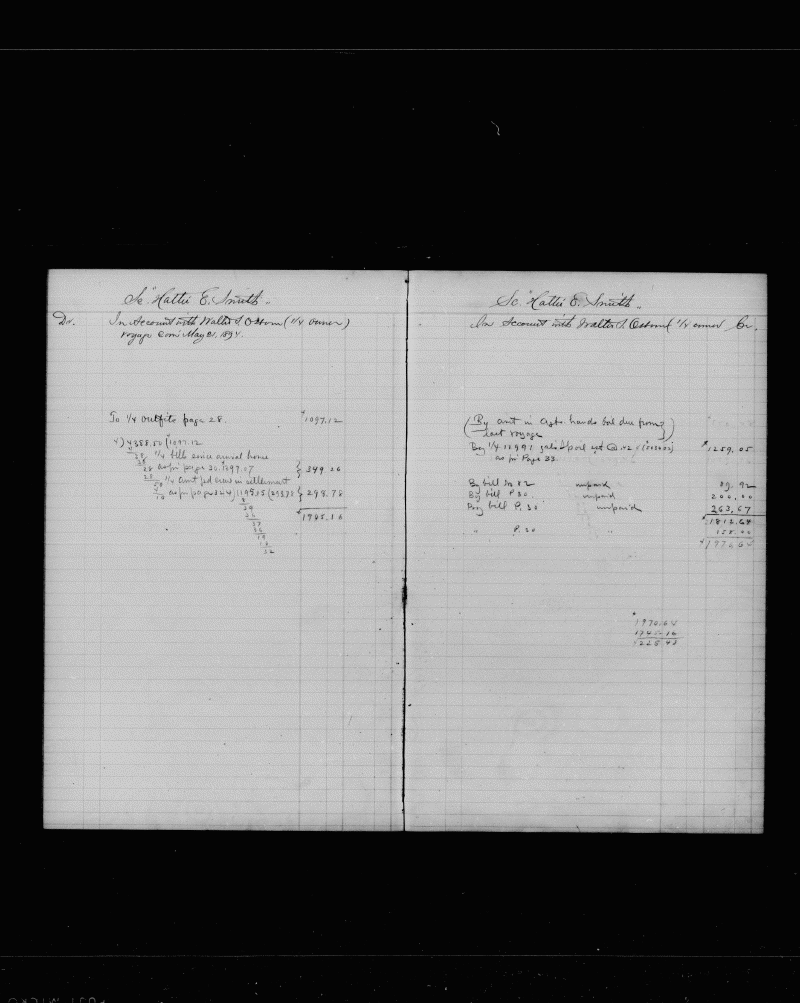 Sc. "Hattie E. Smith"
Dr. In Account with Walter S. Osborn (1/4 owner)
voyage May 21, 1894.
To 1/4 outfits page 28. $1097.12
4)4388.50(1097.12
38 1/4 bills since arrival home
28 as pr page 30. 1397.07 } 349 26
1/4 amt pd crew in settlement
19 as pr page 32 4)1195.15(298.78 } 298.78
39
36
35
32
$1745.16
Sc. "Hattie E. Smith"
In Account with Walter S. Osborn (1/4 owner) Cr.
(By amt in Agts. hands bal due from)
last voyage
By 1/4 12991 gals Sp oil @ .42 $1259.05
as pr Page 33.
By bill unpaid 89.92
By bill P. 30. unpaid 200.00
By bill P. 30 unpaid 263.67
$1812.64
" P. 30 " 158.00
$1970.64
$
1970.64
1745.16
$225.48